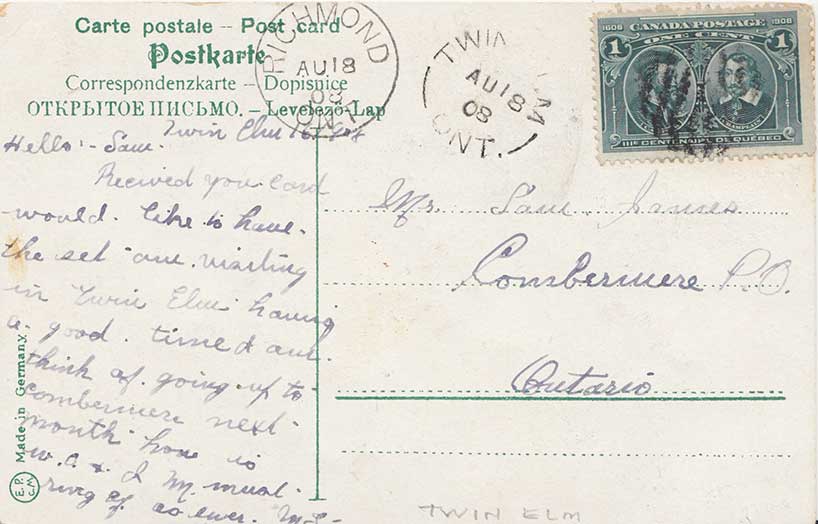 Carte postale – Post card
Postkarte
Correspondenzkarte – Dopisnice
ОТКРЫТОЕ ПИСЬМО. – Levelezö-Lap
RICHMOND
AU 18
08
ONT.
TWIN ELM
AU 18
08
ONT.
1608 CANADA POSTAGE 1908
1 ONE CENT 1
CHAMPLAIN
IIIe CENTENAIRE DE QUÉBEC
Twin Elm
Hello :- Sam.
Recived you card
would. like to have.
the set am. visiting
in Twin Elm having
a. good. time & am.
think of. going. up to
combermere next.
month how is
Mr. Sam James
Combermere P.O.
Ontario
Made in Germany
E.P.
C.M
TWIN ELM